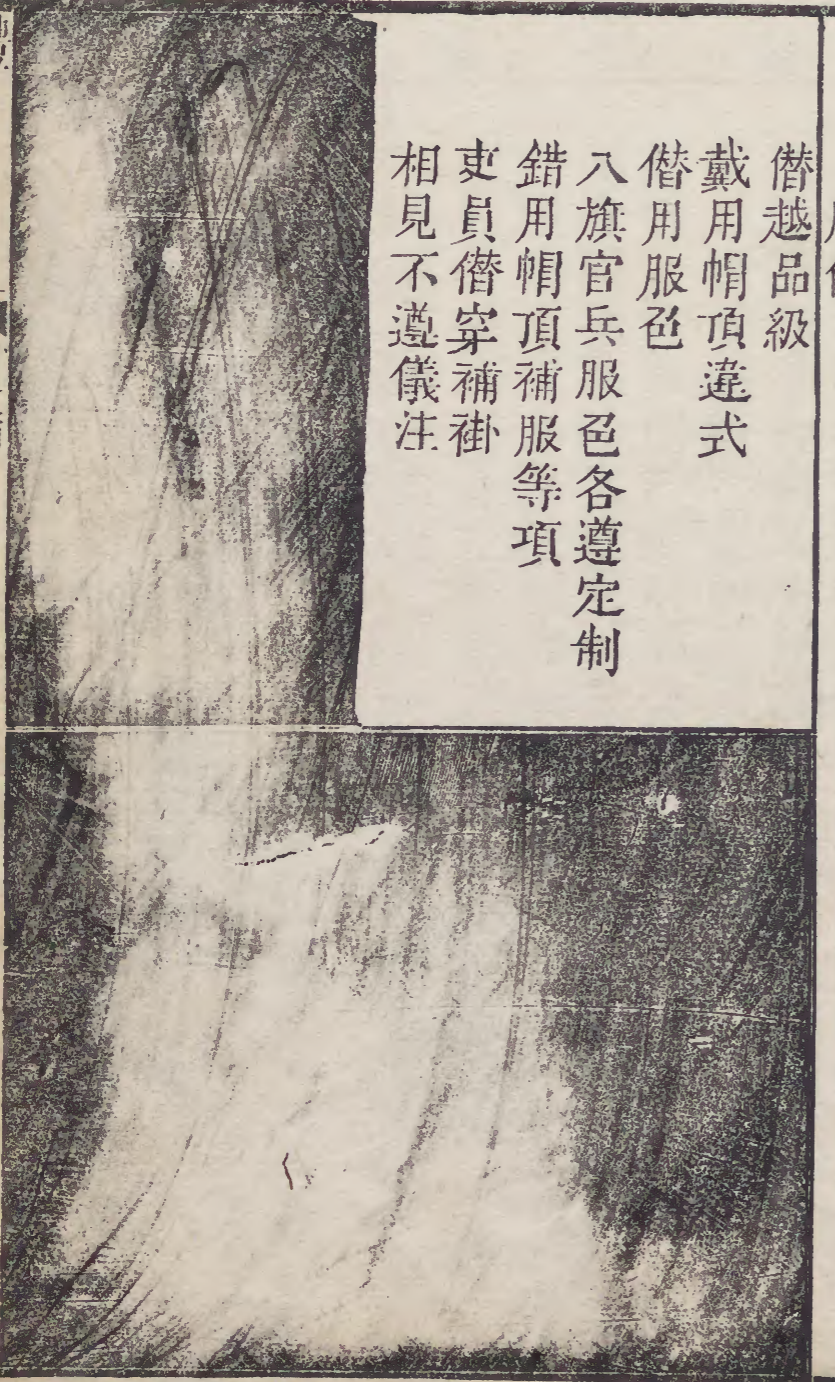 僭越品級
戴用帽頂違式
僭用服色
八旗官兵服色各遵定制
錯用帽頂補服等項
吏員僭穿補褂
相見不遵儀注